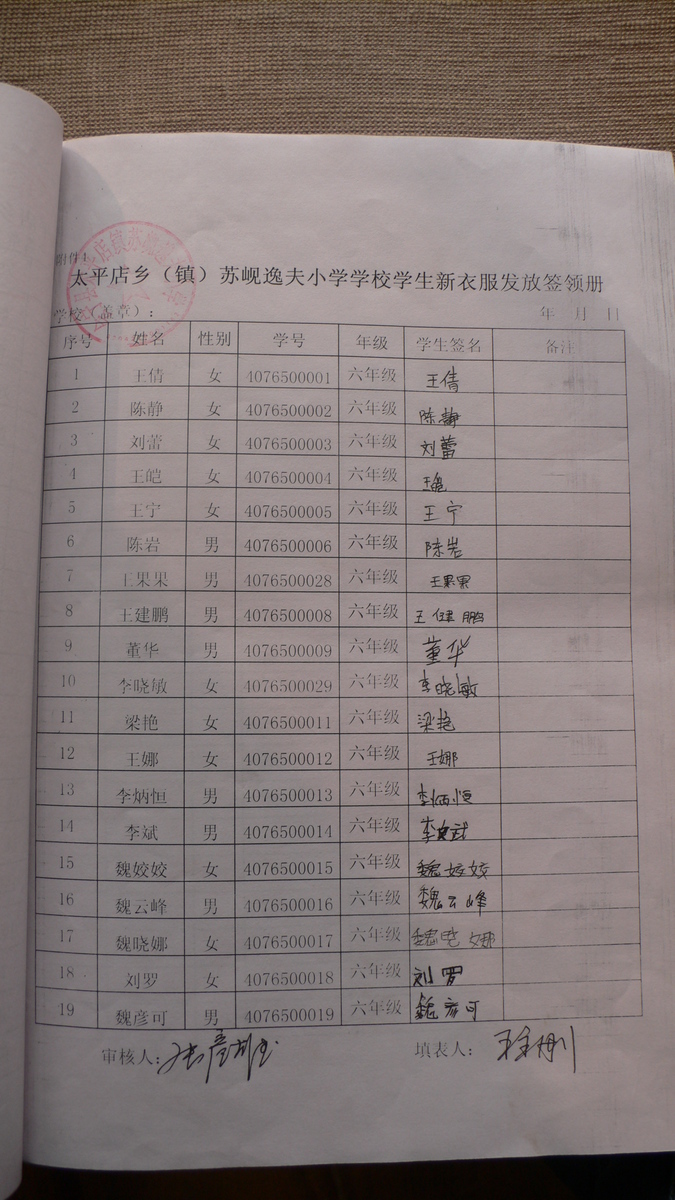 附件1
太平店乡（镇）苏岘逸夫小学学校学生新衣服发放签领册
学校（盖章）： 年 月 日
序号 姓名 性别 学号 年级 学生签名 备注
1 王倩 女 4076500001 六年级 王倩
2 陈静 女 4076500002 六年级 陈静
3 刘蕾 女 4076500003 六年级 刘蕾
4 王皑 女 4076500004 六年级 王皑
5 王宁 女 4076500005 六年级 王宁
6 陈岩 男 4076500006 六年级 陈岩
7 王果果 男 4076500028 六年级 王果果
8 王建鹏 男 4076500008 六年级 王建鹏
9 董华 男 4076500009 六年级 董华
10 李晓敏 女 4076500029 六年级 李晓敏
11 梁艳 女 4076500011 六年级 梁艳
12 王娜 女 4076500012 六年级 王娜
13 李炳恒 男 4076500013 六年级 李炳恒
14 李斌 男 4076500014 六年级 李斌
15 魏姣姣 女 4076500015 六年级 魏姣姣
16 魏云峰 男 4076500016 六年级 魏云峰
17 魏晓娜 女 4076500017 六年级 魏晓娜
18 刘罗 女 4076500018 六年级 刘罗
19 魏彦可 男 4076500019 六年级 魏彦可
审核人： 填表人：